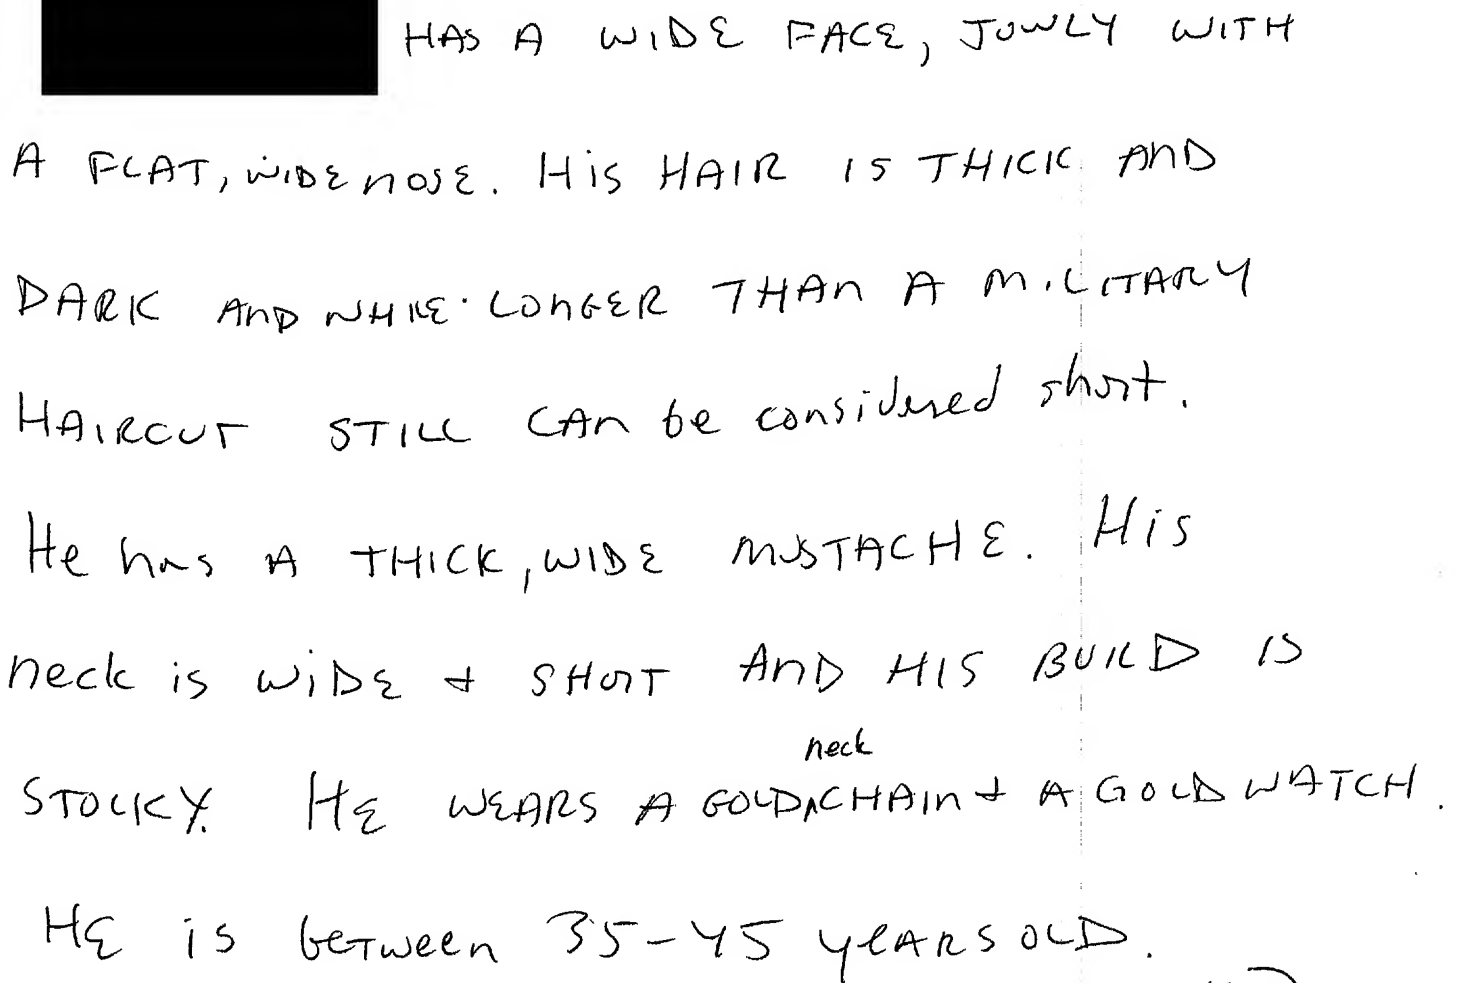 HAS A WIDE FACE, JOWLY WITH
A FLAT, WIDE NOSE. HIS HAIR IS THICK AND
DARK AND WHILE LONGER THAN A MILITARY
HAIRCUT STILL CAN be considered short.
He has A THICK, WIDE MUSTACHE. His
neck is WIDE & SHORT AND HIS BUILD IS
STOCKY. HE WEARS A GOLD neck CHAIN & A GOLD WATCH.
HE is between 35-45 years OLD.